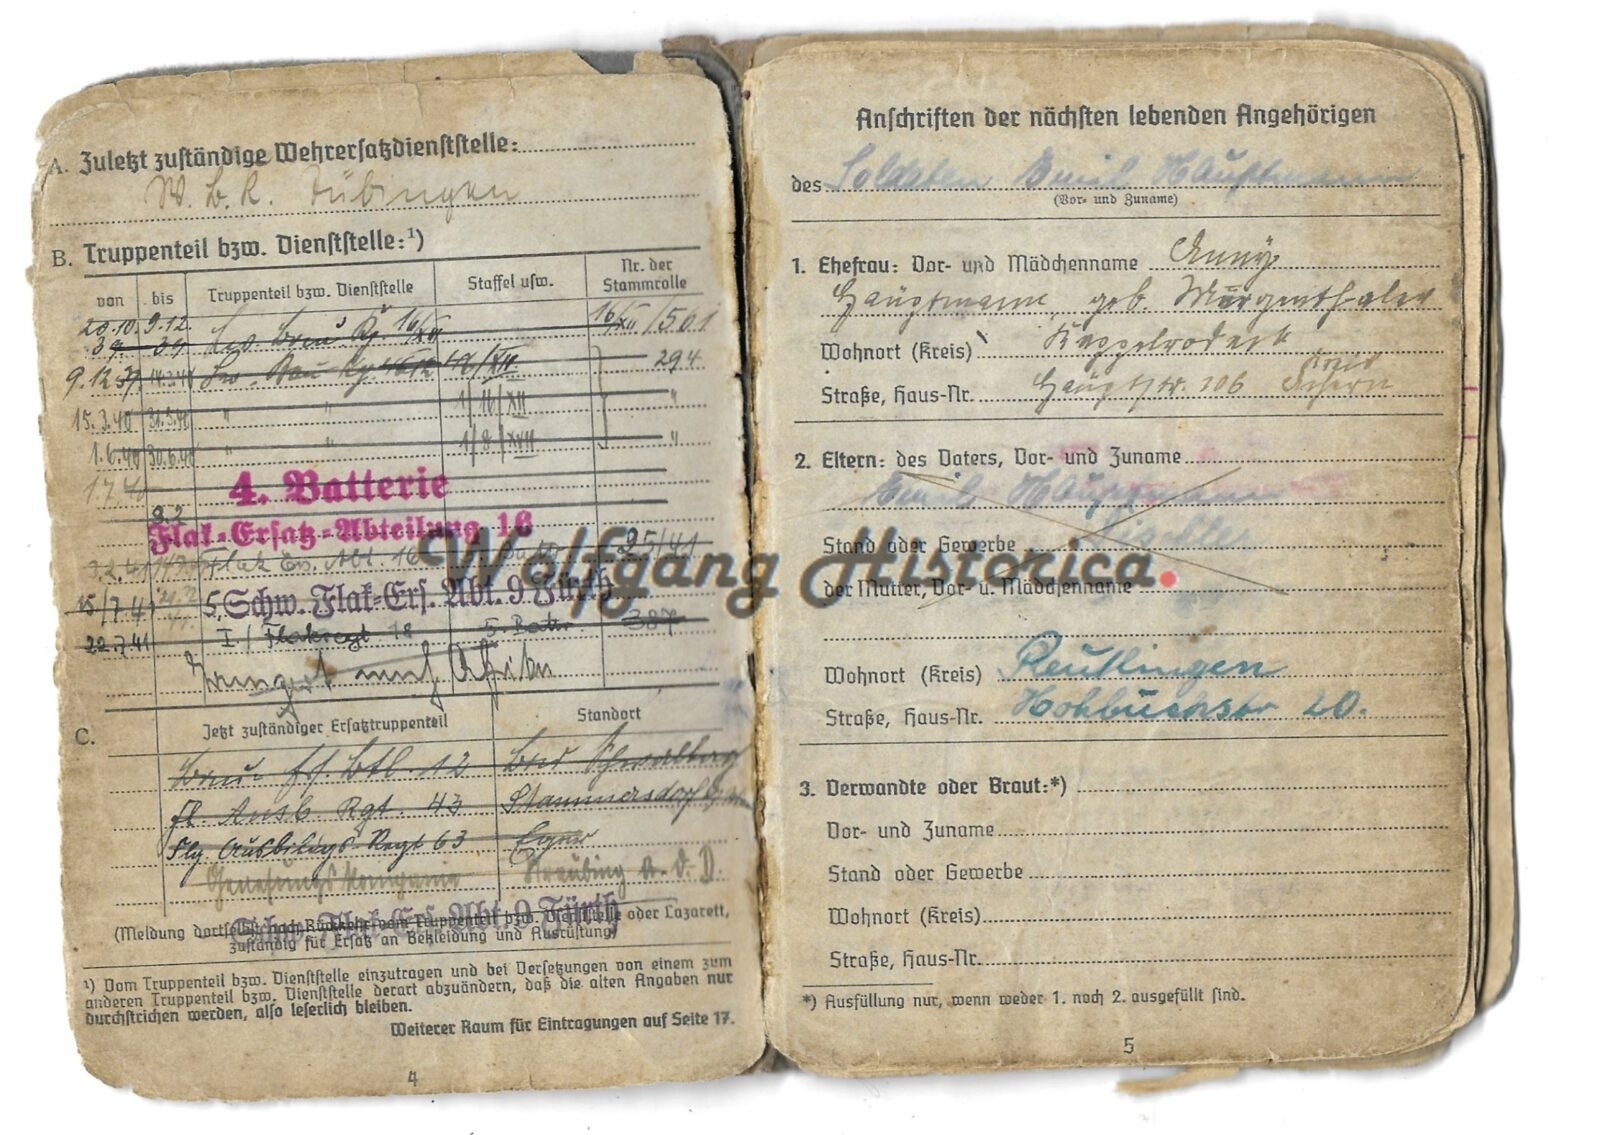 A. Zuletzt zuständige Wehrersatzdienststelle:
W. B. K. Tübingen
B. Truppenteil bzw. Dienststelle:¹)
von bis Truppenteil bzw. Dienststelle Staffel usw. Nr. der Stammrolle
20.10. 9.12. 16/XII 16/XII /501
39. 39
9.12.39 Lw. Bau Kp. /XII 294
15.3.40 31.5.40 " " 1/16/XII "
1.6.40 30.6.40 " 1/8/XVII "
1.7.40
4. Batterie
Flak-Ersatz-Abteilung 16
3.2.41 Flak Ers. Abt. 16 25/41
Wolfgang Historica.
15/7.41 5, Schw. Flak-Ers. Abt. 9 Fürth
22.7.41 I / Flakregt 18 5. Battr. 387
nach Afrika
C. Jetzt zuständiger Ersatztruppenteil Standort
Btl. 12
Fl. Ausb. Rgt. 43 Stammersdorf
Flg. Ausbildgs. Regt 63 Eger
Genesungskompanie Straubing a. d. D.
Schw. Flak-Ers. Abt. 9 Fürth
(Meldung dortselbst nach Rückkehr vom Truppenteil bzw. Dienststelle oder Lazarett,
zuständig für Ersatz an Bekleidung und Ausrüstung)
¹) Vom Truppenteil bzw. Dienststelle einzutragen und bei Versetzungen von einem zum
anderen Truppenteil bzw. Dienststelle derart abzuändern, daß die alten Angaben nur
durchstrichen werden, also leserlich bleiben.
Weiterer Raum für Eintragungen auf Seite 17.
4
Anschriften der nächsten lebenden Angehörigen
des Soldaten Emil Hauptmann
(Vor- und Zuname)
1. Ehefrau: Vor- und Mädchenname Anny
Hauptmann geb. Murgenthaler
Wohnort (Kreis) Kappelrodeck
Kreis
Straße, Haus-Nr. Hauptstr. 106 Achern
2. Eltern: des Vaters, Vor- und Zuname
Emil Hauptmann
Stand oder Gewerbe
der Mutter, Vor- u. Mädchenname
Wohnort (Kreis) Reutlingen
Straße, Haus-Nr. Hohbuchstr 20.
3. Verwandte oder Braut:*)
Vor- und Zuname
Stand oder Gewerbe
Wohnort (Kreis)
Straße, Haus-Nr.
*) Ausfüllung nur, wenn weder 1. noch 2. ausgefüllt sind.
5